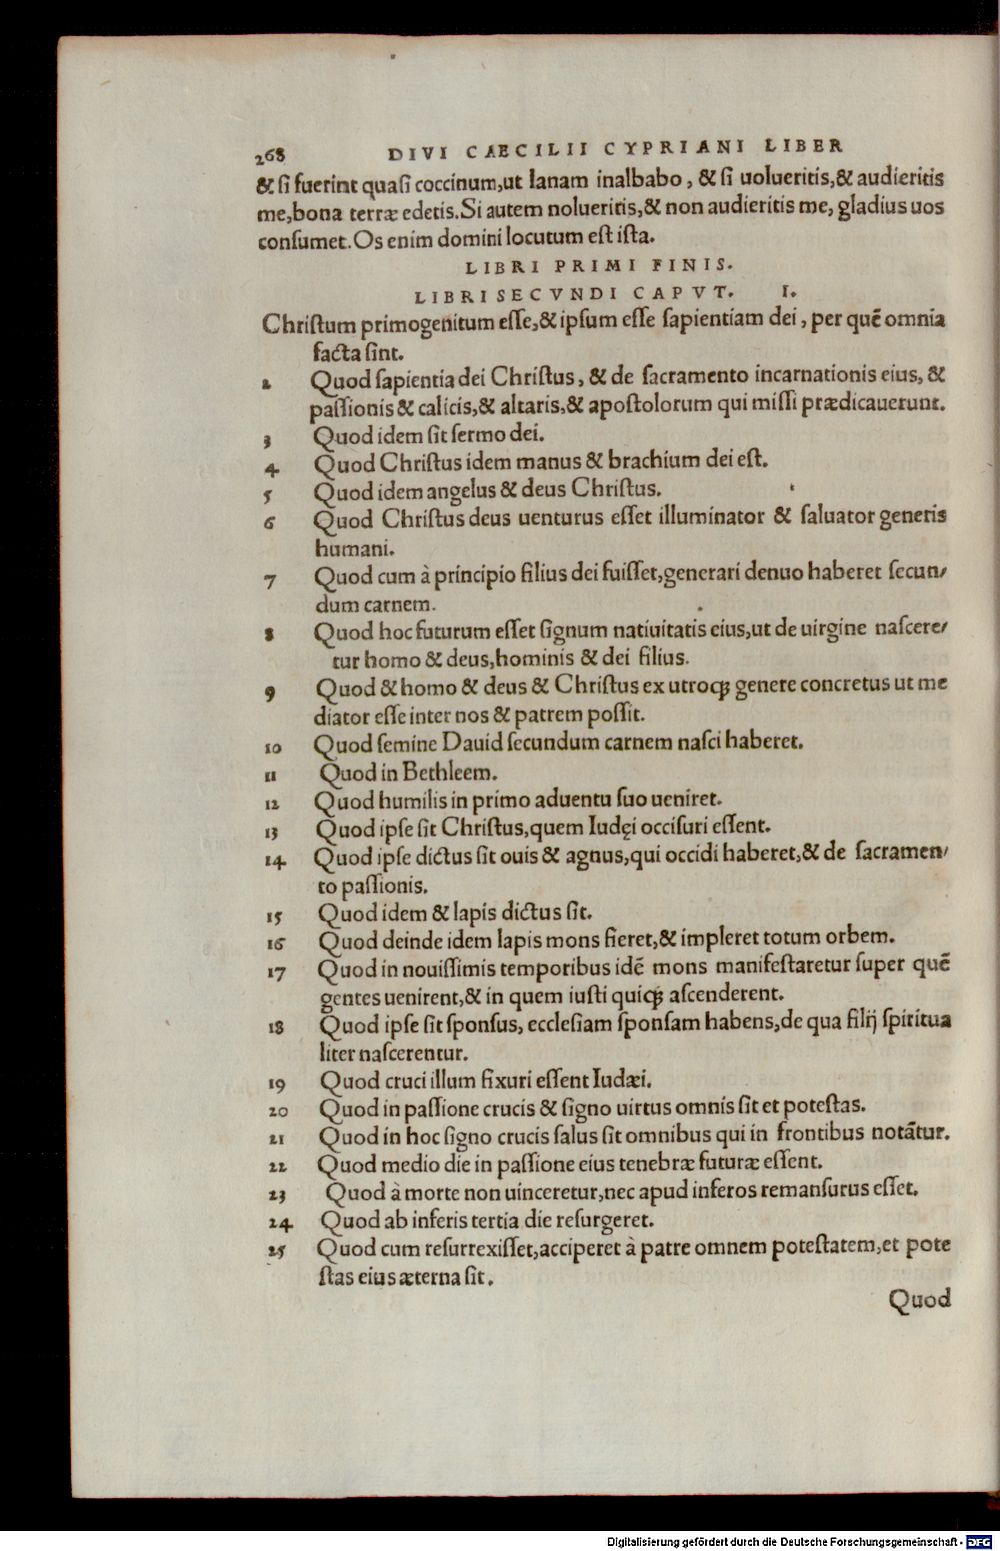 268 DIVI CAECILII CYPRIANI LIBER
& ſi fuerint quaſi coccinum,ut lanam inalbabo, & ſi uolueritis,& audieritis
me,bona terræ edetis.Si autem nolueritis,& non audieritis me, gladius uos
conſumet.Os enim domini locutum eſt iſta.
LIBRI PRIMI FINIS.
LIBRI SECVNDI CAPVT. I.
Chriſtum primogenitum eſſe,& ipſum eſſe ſapientiam dei, per quē omnia
facta ſint.
2 Quod ſapientia dei Chriſtus, & de ſacramento incarnationis eius, &
paſſionis & calicis,& altaris,& apoſtolorum qui miſſi prædicauerunt.
3 Quod idem ſit ſermo dei.
4 Quod Chriſtus idem manus & brachium dei eſt.
5 Quod idem angelus & deus Chriſtus.
6 Quod Chriſtus deus uenturus eſſet illuminator & ſaluator generis
humani.
7 Quod cum à principio filius dei fuiſſet,generari denuo haberet ſecun/
dum carnem.
8 Quod hoc futurum eſſet ſignum natiuitatis eius,ut de uirgine naſcere/
tur homo & deus,hominis & dei filius.
9 Quod & homo & deus & Chriſtus ex utroqꝫ genere concretus ut me
diator eſſe inter nos & patrem poſſit.
10 Quod ſemine Dauid ſecundum carnem naſci haberet.
11 Quod in Bethleem.
12 Quod humilis in primo aduentu ſuo ueniret.
13 Quod ipſe ſit Chriſtus,quem Iudęi occiſuri eſſent.
14 Quod ipſe dictus ſit ouis & agnus,qui occidi haberet,& de ſacramen/
to paſſionis.
15 Quod idem & lapis dictus ſit.
16 Quod deinde idem lapis mons fieret,& impleret totum orbem.
17 Quod in nouiſſimis temporibus idē mons manifeſtaretur ſuper quē
gentes uenirent,& in quem iuſti quiqꝫ aſcenderent.
18 Quod ipſe ſit ſponſus, eccleſiam ſponſam habens,de qua filij ſpiritua
liter naſcerentur.
19 Quod cruci illum fixuri eſſent Iudæi.
20 Quod in paſſione crucis & ſigno uirtus omnis ſit et poteſtas.
21 Quod in hoc ſigno crucis ſalus ſit omnibus qui in frontibus notātur.
22 Quod medio die in paſſione eius tenebræ futuræ eſſent.
23 Quod à morte non uinceretur,nec apud inferos remanſurus eſſet.
24 Quod ab inferis tertia die reſurgeret.
25 Quod cum reſurrexiſſet,acciperet à patre omnem poteſtatem,et pote
ſtas eius æterna ſit.
Quod
Digitalisierung gefördert durch die Deutsche Forschungsgemeinschaft - DFG